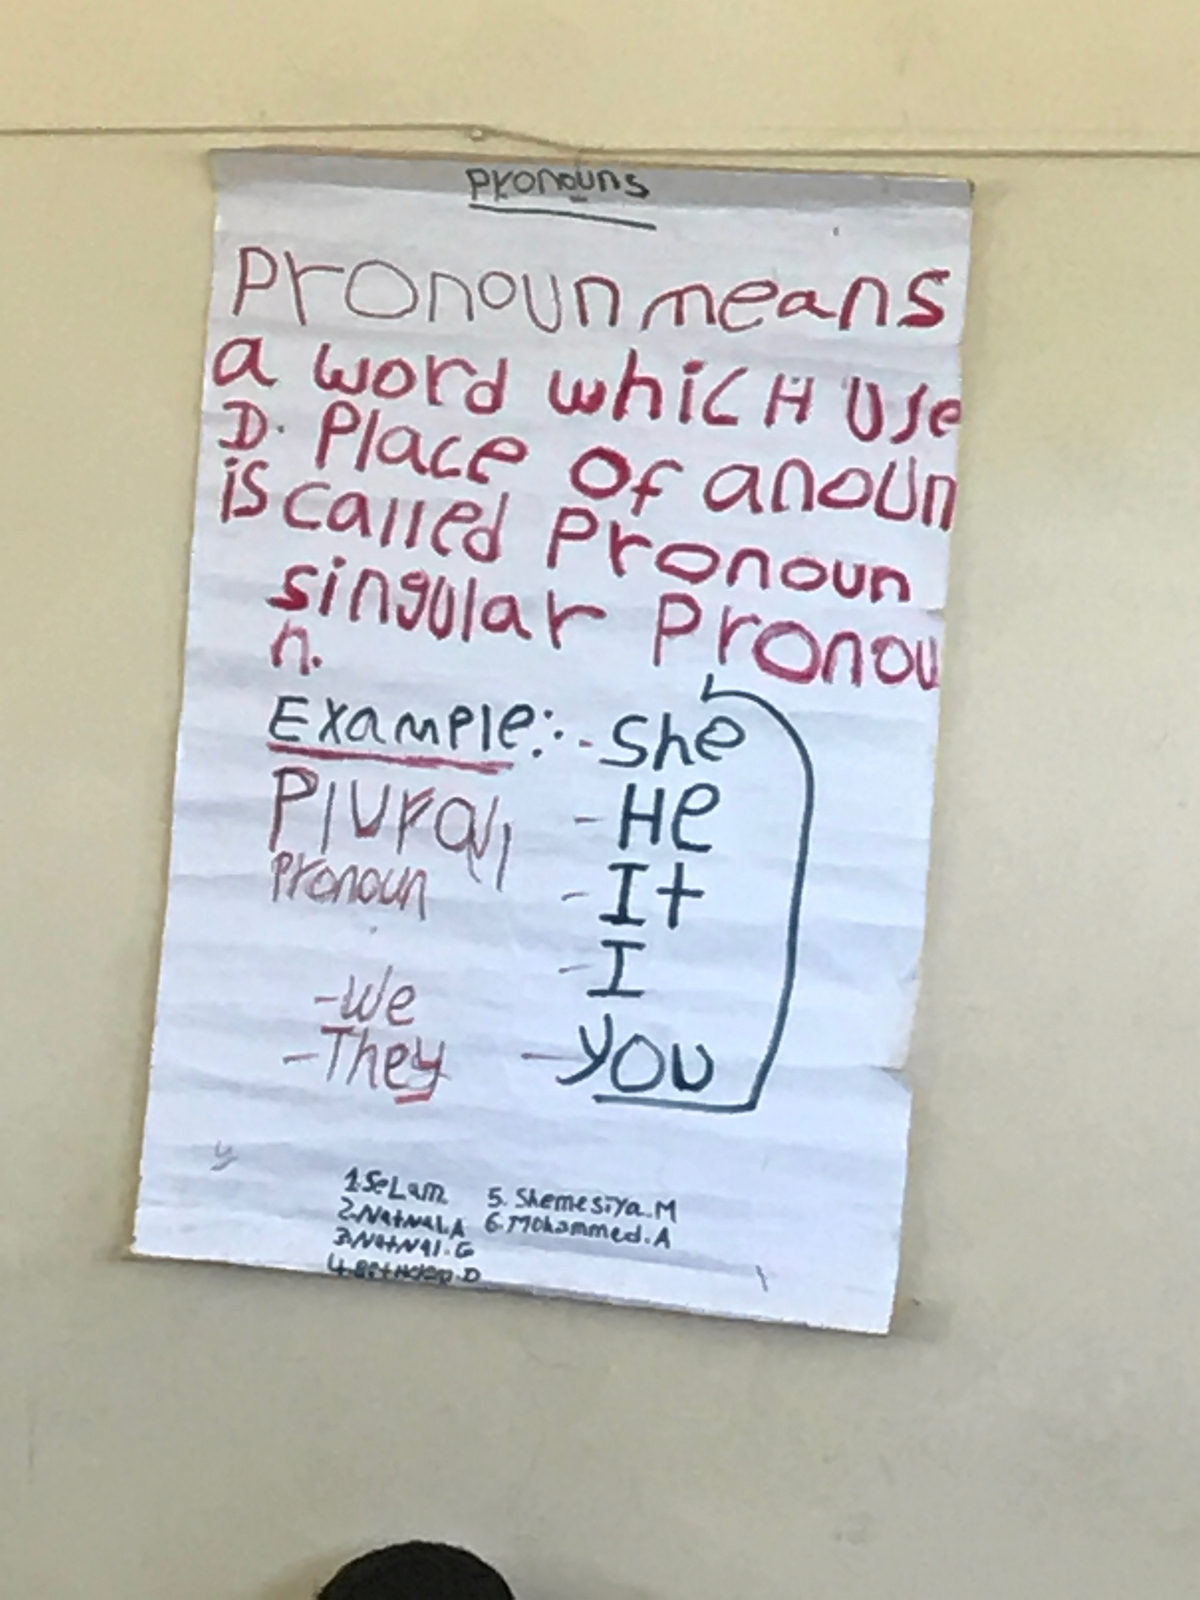 Pronouns
Pronoun means
a word whicH Use
D. Place Of a noun
is called Pronoun
singular Pronou
n.
Example:- - She
- He
- It
- I
- you
Plural
Pronoun
- We
- They
1. SeLam
2. NatNal.A
3. NatNal.G
5. Shemesiya.M
6. Mohammed.A